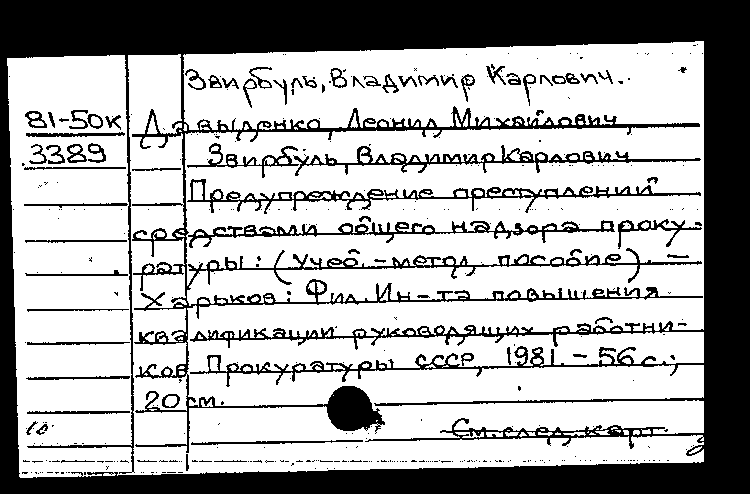 Звирбуль, Владимир Карлович.
81-50к Давыденко, Леонид Михайлович,
3389 Звирбуль, Владимир Карлович
Предупреждение преступлений
средствами общего надзора проку-
ратуры: (Учеб.-метод. пособие). –
Харьков: Фил. Ин-та повышения
квалификации руководящих работни-
ков Прокуратуры СССР, 1981. – 56 с.;
20 см.
См. след. карт.